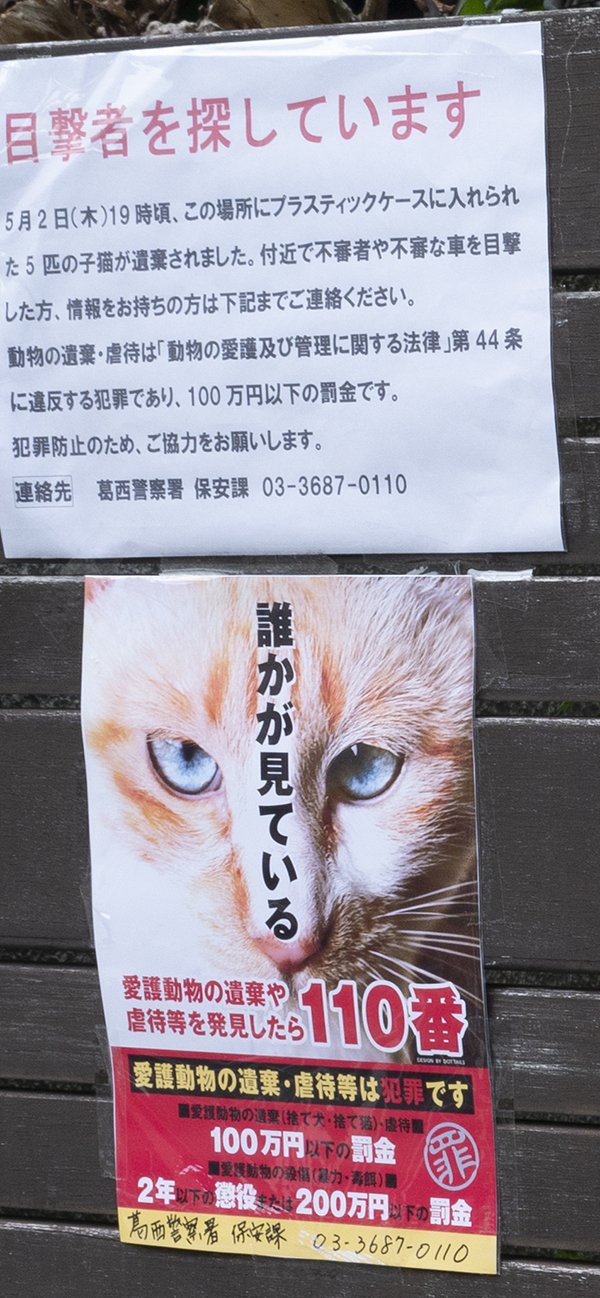 目撃者を探しています
5月2日(木)19時頃、この場所にプラスティックケースに入れられ
た5 匹の子猫が遺棄されました。付近で不審者や不審な車を目撃
した方、情報をお持ちの方は下記までご連絡ください。
動物の遺棄・虐待は「動物の愛護及び管理に関する法律」第44条
に違反する犯罪であり、100万円以下の罰金です。
犯罪防止のため、ご協力をお願いします。
連絡先 葛西警察署 保安課 03-3687-0110
誰かが見ている
愛護動物の遺棄や
虐待等を発見したら110番
DESIGN BY DOTTAILS
愛護動物の遺棄・虐待等は犯罪です
■愛護動物の遺棄(捨て犬・捨て猫)・虐待■
100万円以下の罰金
罪
■愛護動物の殺傷(暴力・毒餌)■
2年以下の懲役または200万円以下の罰金
葛西警察署 保安課 03-3687-0110